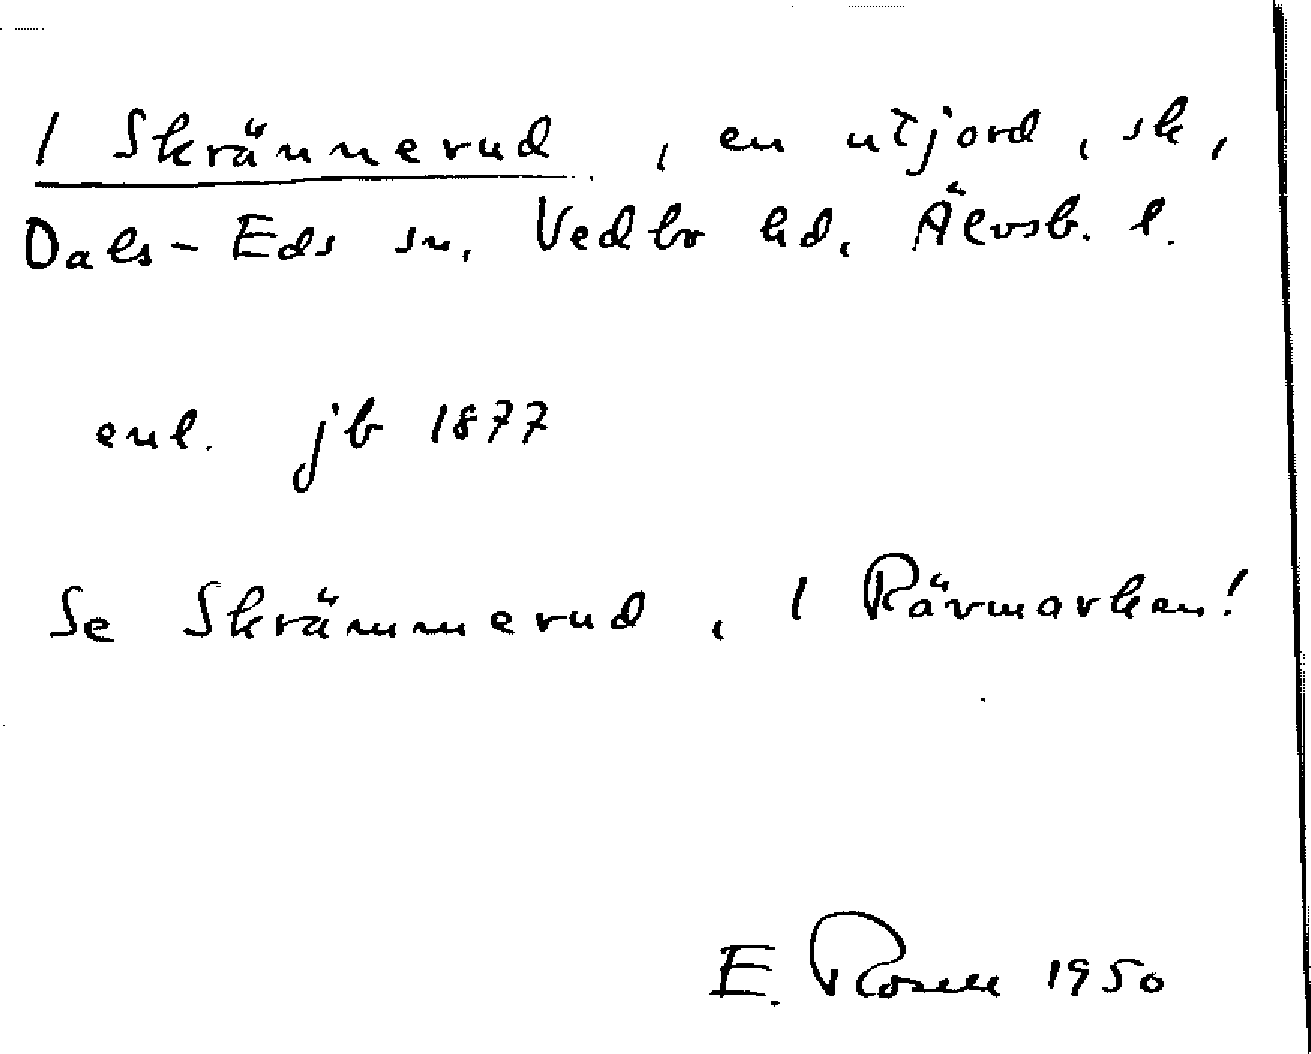 1 Skrännerud, en utjord, sk,
Dals-Eds sn, Vedbo hd, Älvsb. l.
enl. jb 1877
Se Skrämmerud, 1 Rävmarken!
E. Rosell 1950